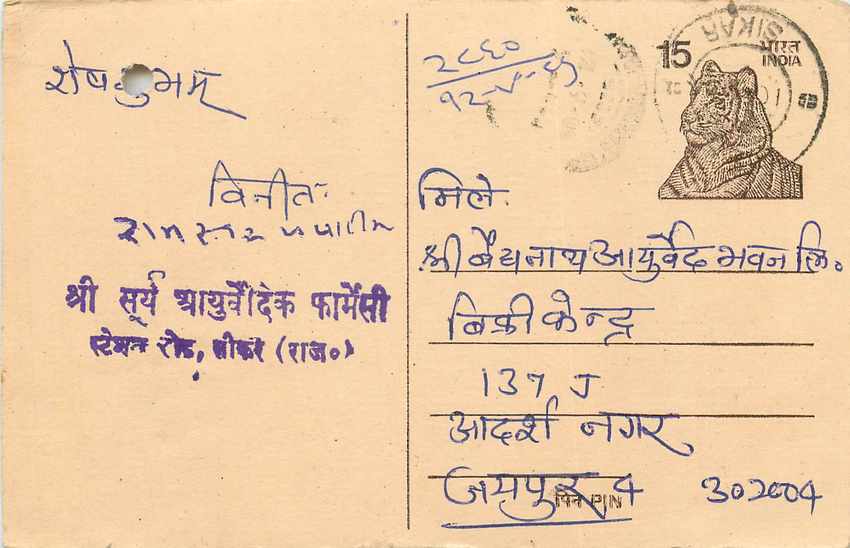 शेष शुभम्
विनीत
श्री सूर्य आयुर्वेदिक फार्मेसी
स्टेशन रोड, सीकर (राज०)
२८६०
15 भारत
INDIA
SIKAR
मिले.
श्री बैद्यनाथ आयुर्वेद भवन लि०
बिक्री केन्द्र
137 J
आदर्श नगर
जयपुर 4 302004
पिन PIN